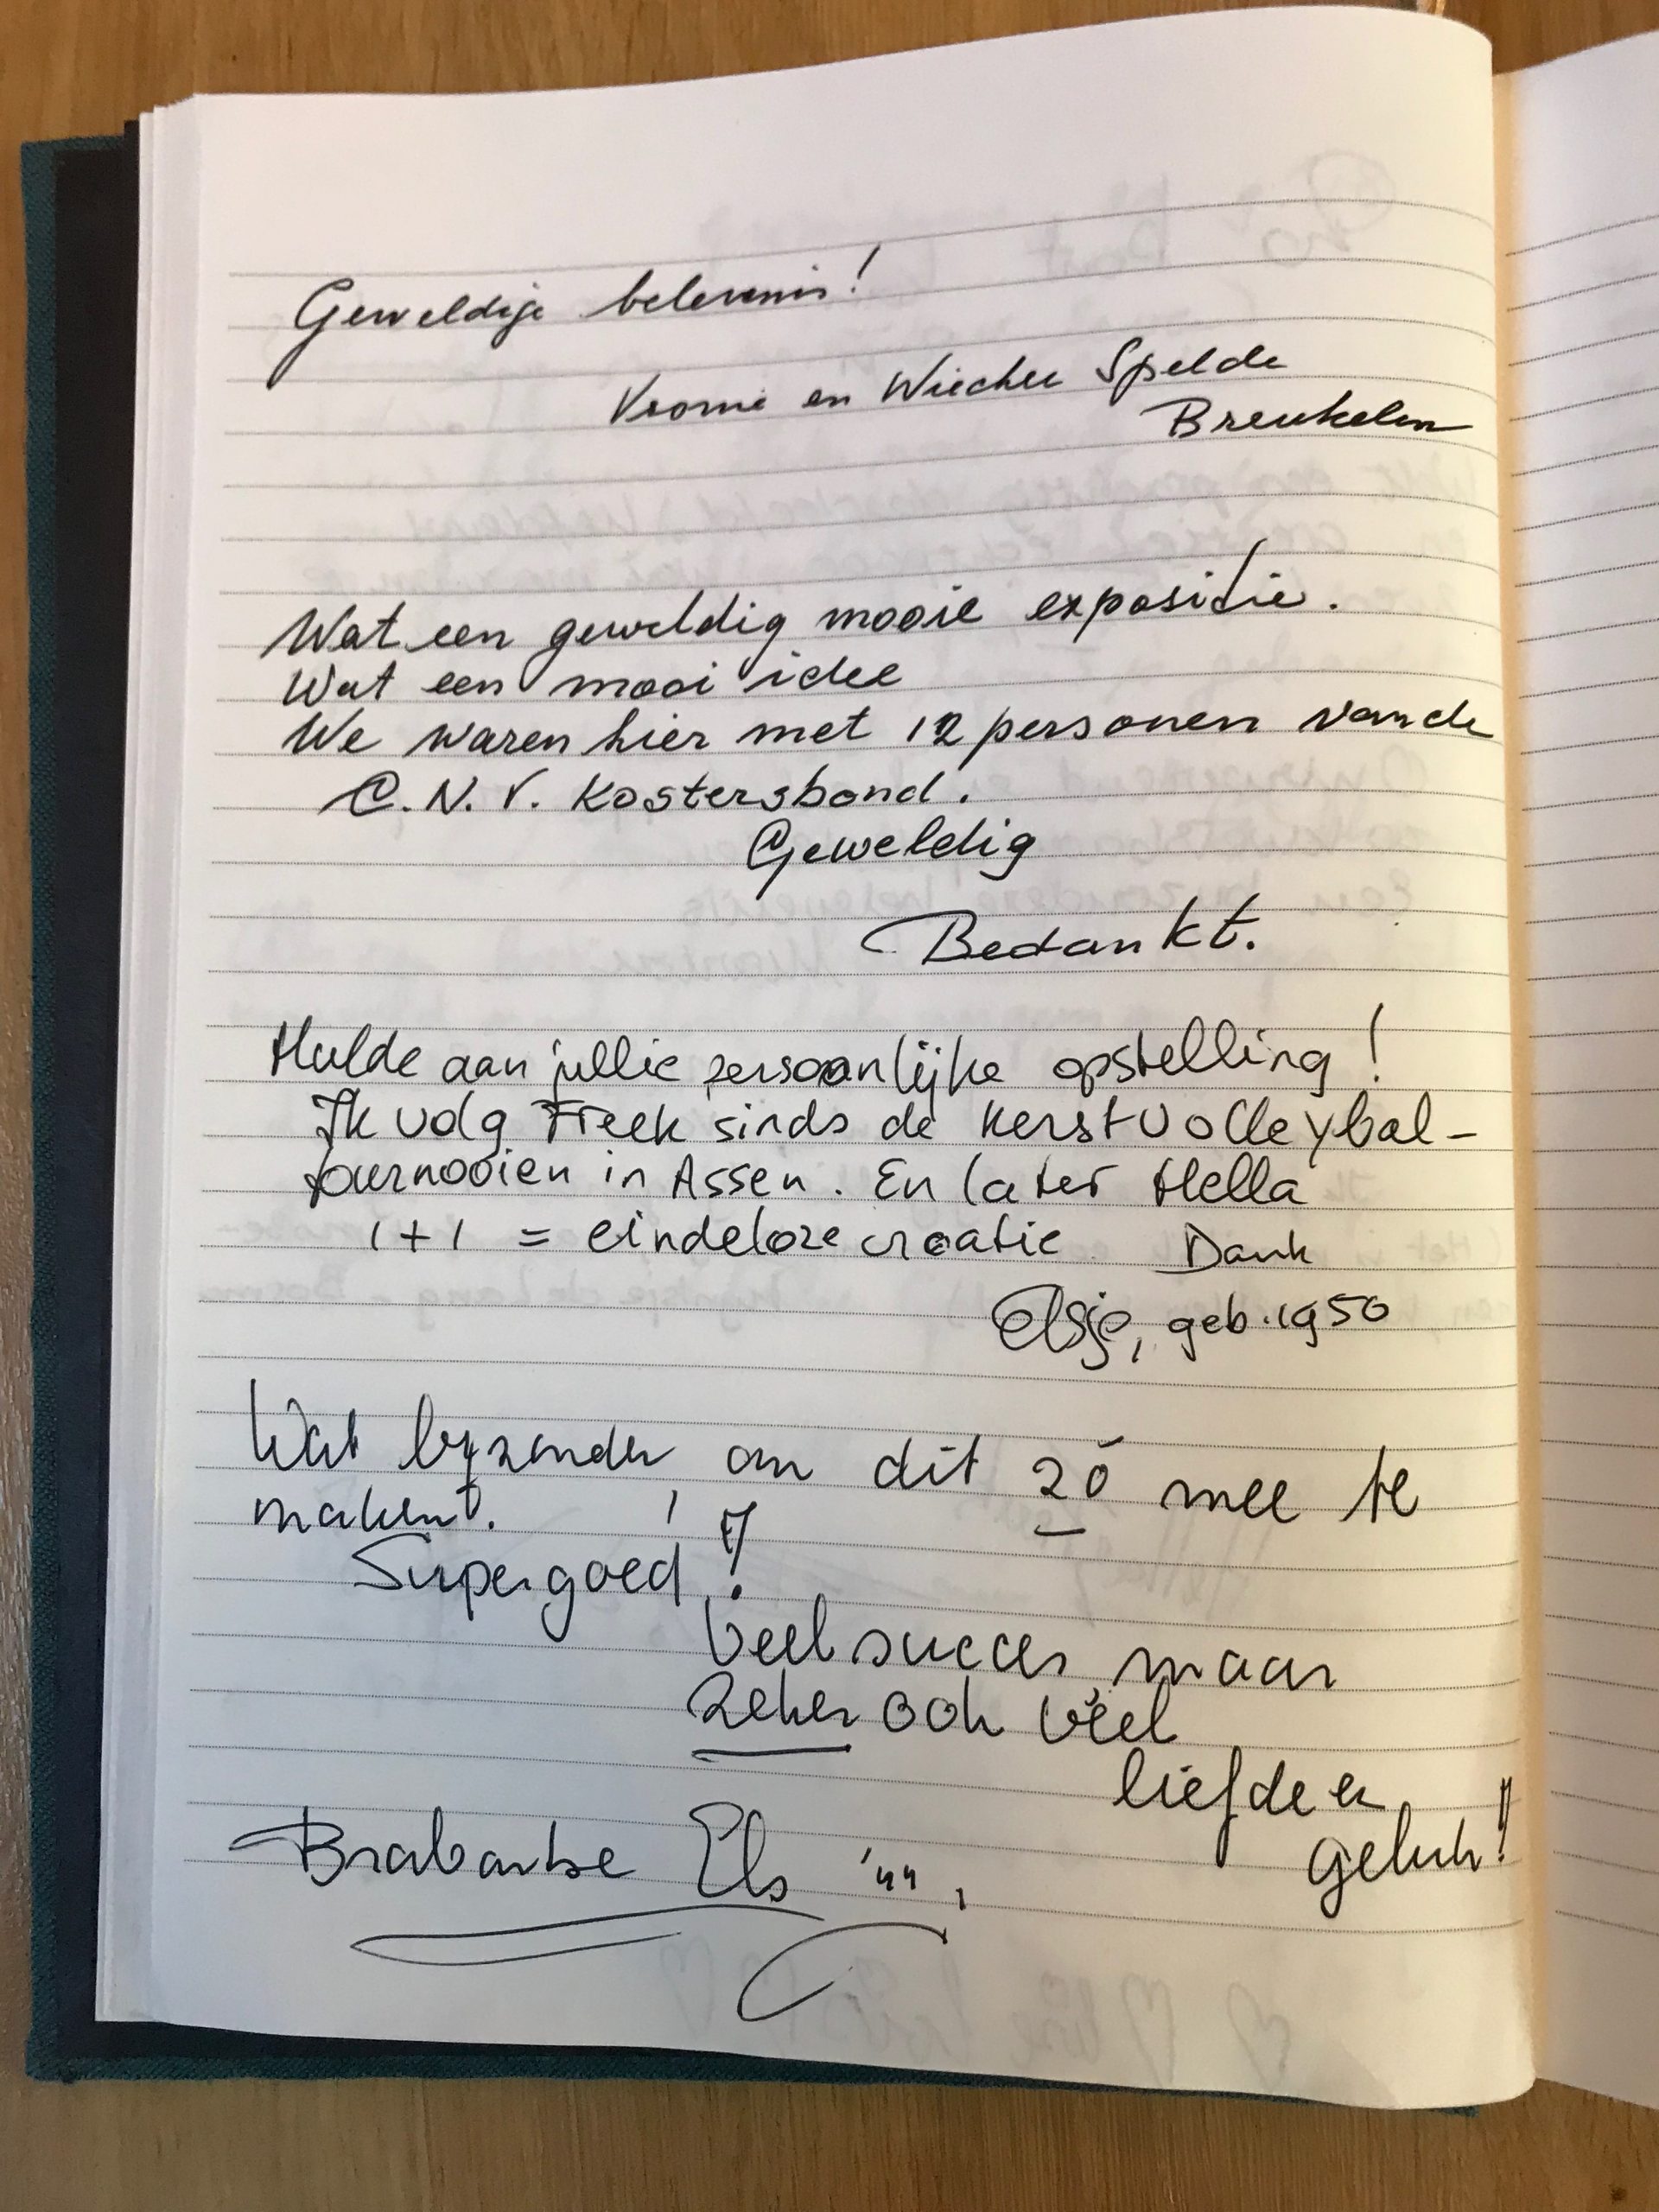 Geweldige belevenis!
Vromi en Wiecher Spelde
Breukelen
Wat een geweldig mooie expositie.
Wat een mooi idee
We waren hier met 12 personen van de
C.N.V. Kostersbond.
Geweldig
Bedankt.
Hulde aan jullie persoonlijke opstelling!
Ik volg Freek sinds de Kerstvolleybal-
tournooien in Assen. En later Hella
1+1 = eindeloze creatie Dank
Elsje, geb. 1950
Wat byzonder om dit zó mee te
maken!.
Supergoed!!
Veel succes, maar
zeker ook véél
liefde en
geluk!!
Brabantse Els '44,